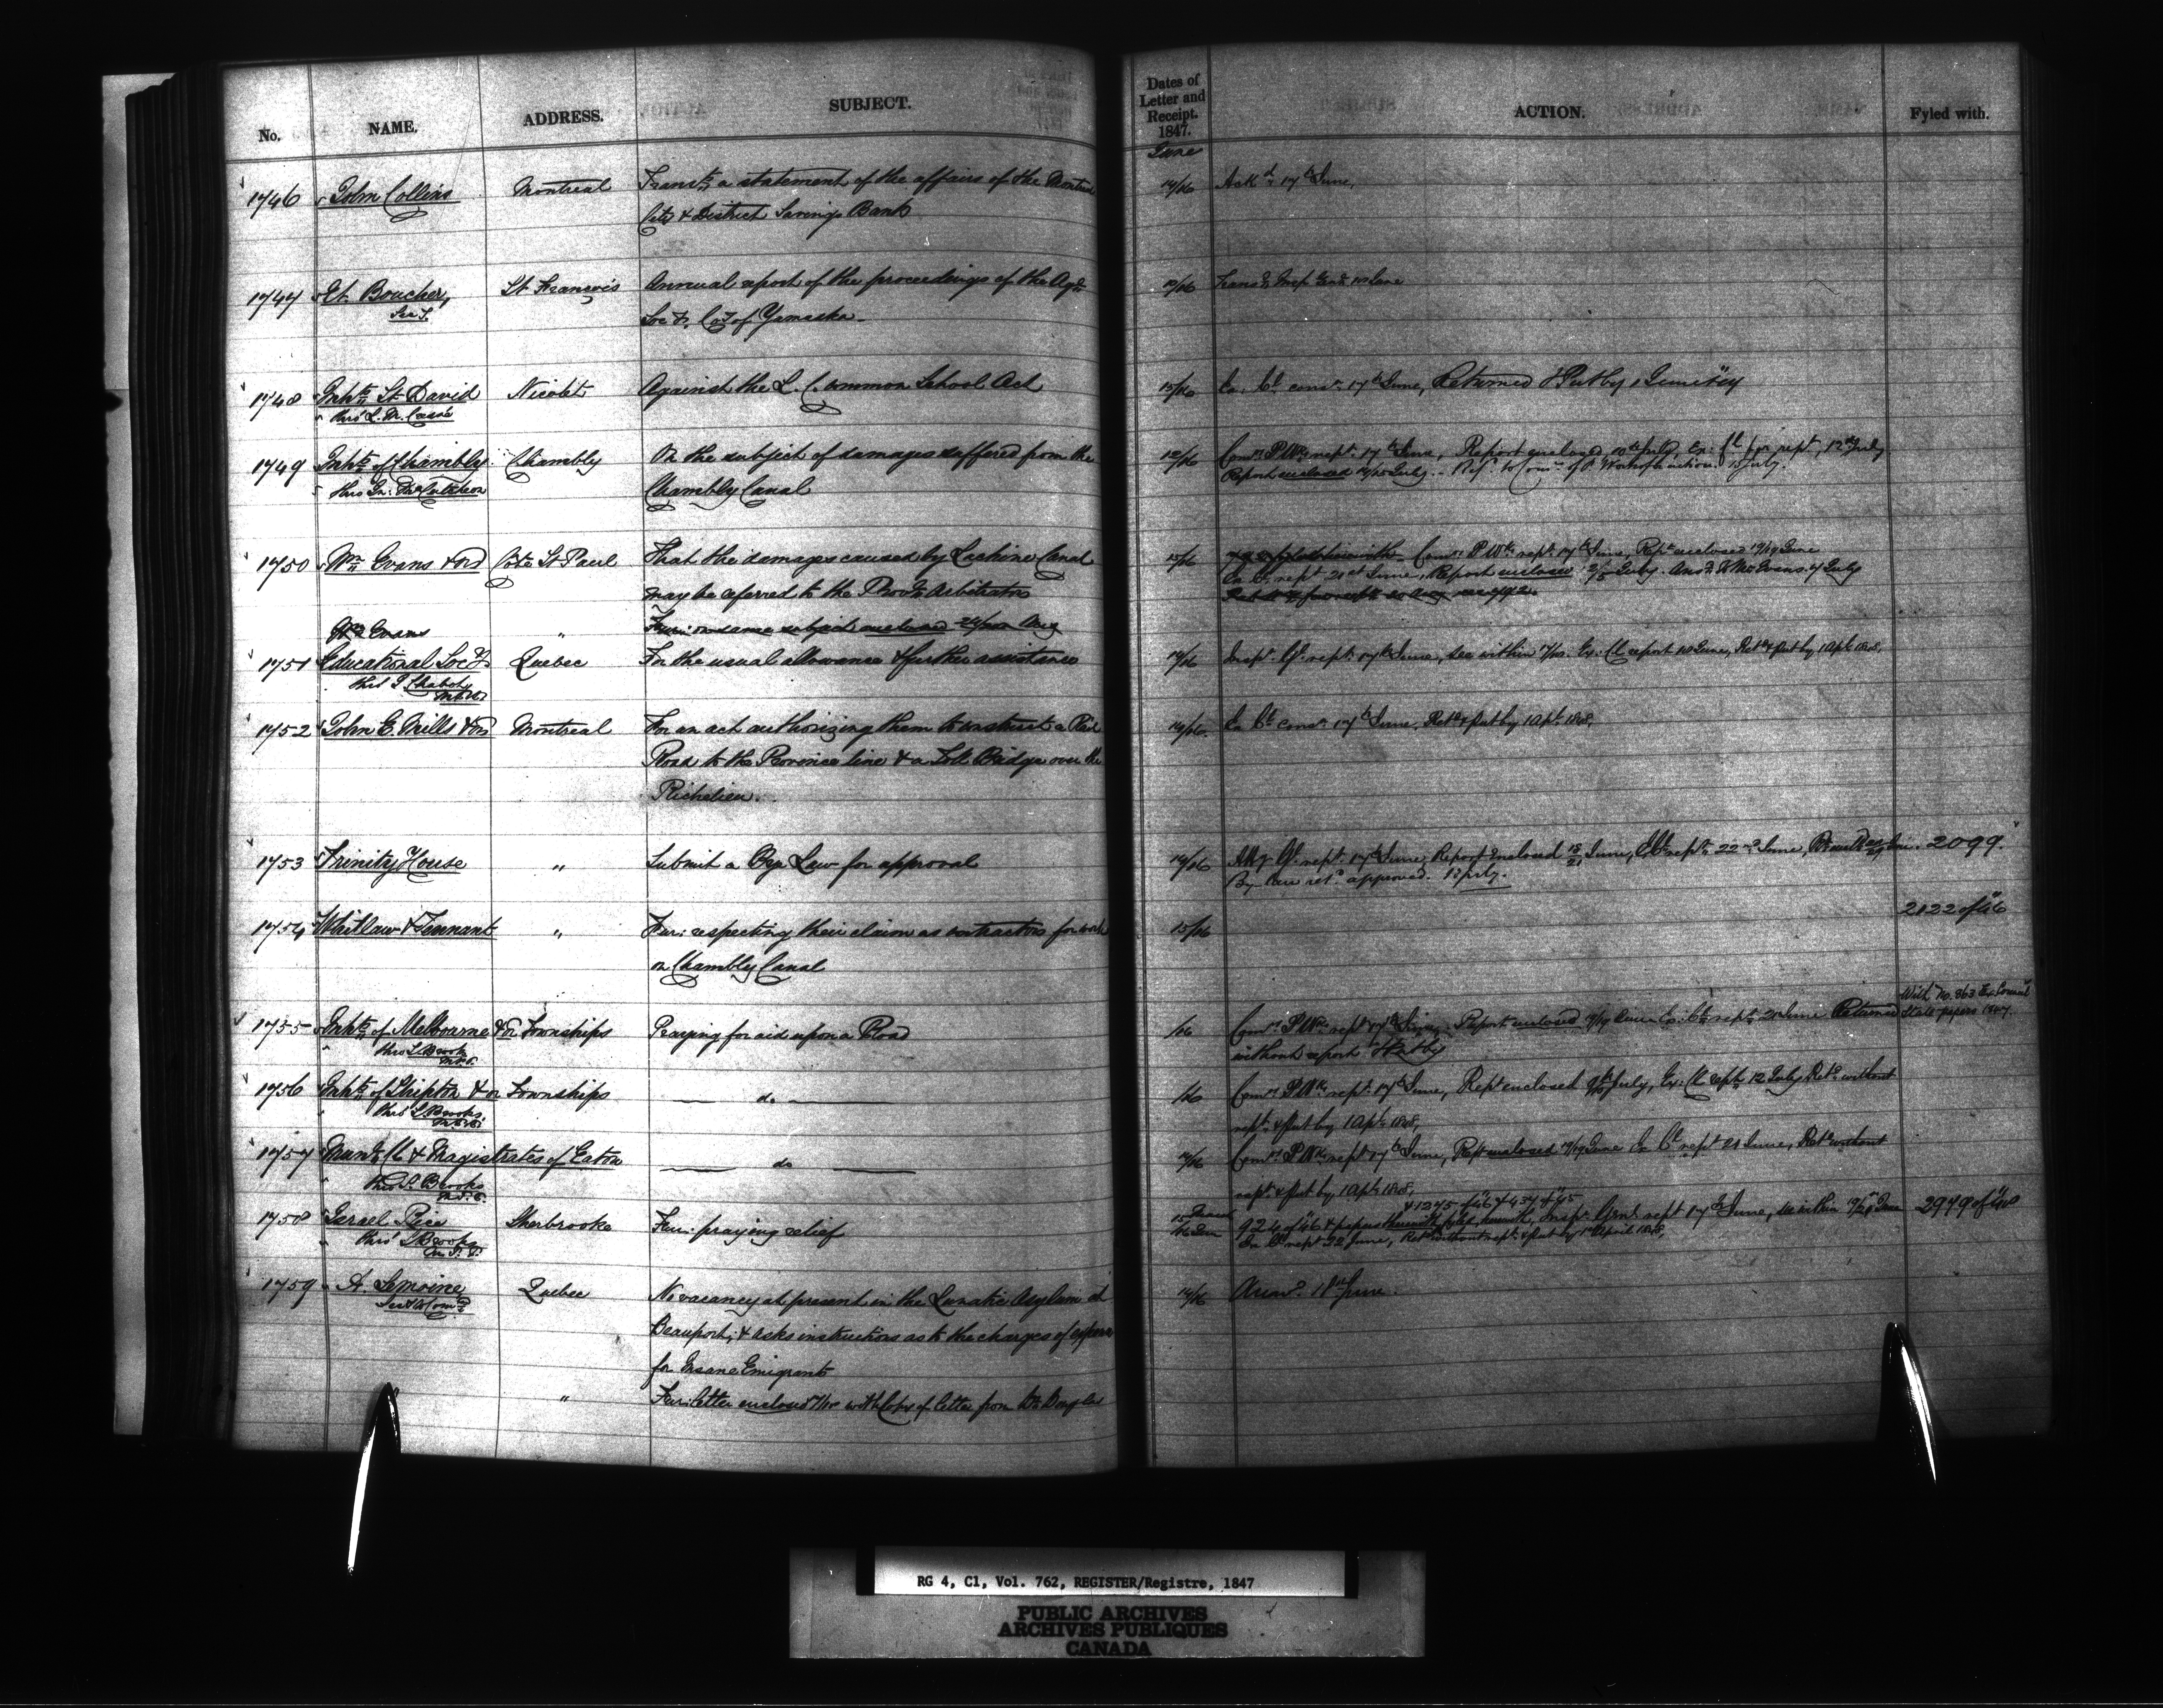 No. NAME. ADDRESS. SUBJECT. Dates of Letter and Receipt. 1847. ACTION. Fyled with.
June
1746 John Collins Montreal Transtg a statement of the affairs of the Montreal 14/16 Ackd 17th June,
City & District Savings Bank
1747 Et. Boucher, St. François Annual report of the proceedings of the Agrl
Sec T. Soc Co of Yamaska
1748 Inhts St. David Nicolet Against the L. C. Common School Act 15/16 Ex. Cl. consn 17th June, Returned & Put by
thro' L. M.
1749 Inhts of Chambly Chambly On the subject of damages suffered from the 12/16 Comrs P. Wks rept 17th June, Report enclosed July, Ex: Cl for rept, 12th July
thro Chambly Canal Report enclosed July. Refd to Comrs of P Works for action July.
1750 Wm Evans & ors Cote St Paul That the damages caused by Lachine Canal 15/16 Comrs P. Wks rept 17th June, Rept enclosed 17/19 June
may be referred to the Provl Arbitrators Ex. Cl. rept 21st June, Report enclosed July. Ansd to Mr Evans July
Wm Evans " Fur: on same subject enclosed Aug
1751 Educational Socy Quebec For the usual allowance & further assistance 14/16 Inspr Gl. rept 17th June, see within Ex. Cl report June, Retd & Put by 1 Apl 1848,
thro J Chabot
M.P.P.
1752 John E. Mills & ors Montreal For an act authorizing them to construct a Rail 14/16. Ex Cl consn 17th June, Retd & Put by 1 Apl 1848,
Road to the Province line & a Toll Bridge over the
Richelieu.
1753 Trinity House " Submit a Bye Law for approval 14/16 Atty Gl. rept 17th June, Report Enclosed 18/21 June, Ex Cl rept 22nd June, 2099.
By Law retd approved. July.
2122 of 46
1754 Whitlaw & Tennant " Fur: respecting their claim as contractors for work 15/16
on Chambly Canal
With No. 863 Ex Council
1755 Inhts of Melbourne & or Townships Praying for aid upon a Road /16 Comrs P. Wks rept 17th June, Report enclosed 17/19 June Ex. Cl. rept 21 June Returned State papers 1847.
thro S. Brooks without report & Put by
M.P.P.
1756 Inhts of Shipton & or Townships do /16 Comrs P. Wks rept 17th June, Rept enclosed July, Ex: Cl rept 12 July Retd without
thro' S Brooks rept & Put by 1 Apl 1848,
M.P.P.
1757 Munl Cl & Magistrates of Eaton do 14/16 Comrs P. Wks rept 17th June, Rept enclosed 17/19 June Ex Cl rept 21 June, Retd without
thro S. Brooks rept & Put by 1 Apl 1848,
M.P.P. & 1275 of 46 & 437 of 45
1758 Israel Rice Sherbrooke Fur: praying relief 16 Jun 924 of 46 & papers therewith fyled herewith, Inspr Genl rept 17th June, see within June 2979 of 48
thro' S Brooks Ex Cl rept 22 June, Retd without rept & Put by 1st April 1848,
M.P.P.
1759 A. Lemoine Quebec No vacancy at present in the Lunatic Asylum at 14/16 Answd 18th June.
Sec to Comrs Beauport, & asks instructions as to the charges of
for Insane Emigrants
" Fur: letter enclosed with Copy of letter from Dr Douglas
RG 4, C1, Vol. 762, REGISTER/Registre, 1847
PUBLIC ARCHIVES
ARCHIVES PUBLIQUES
CANADA